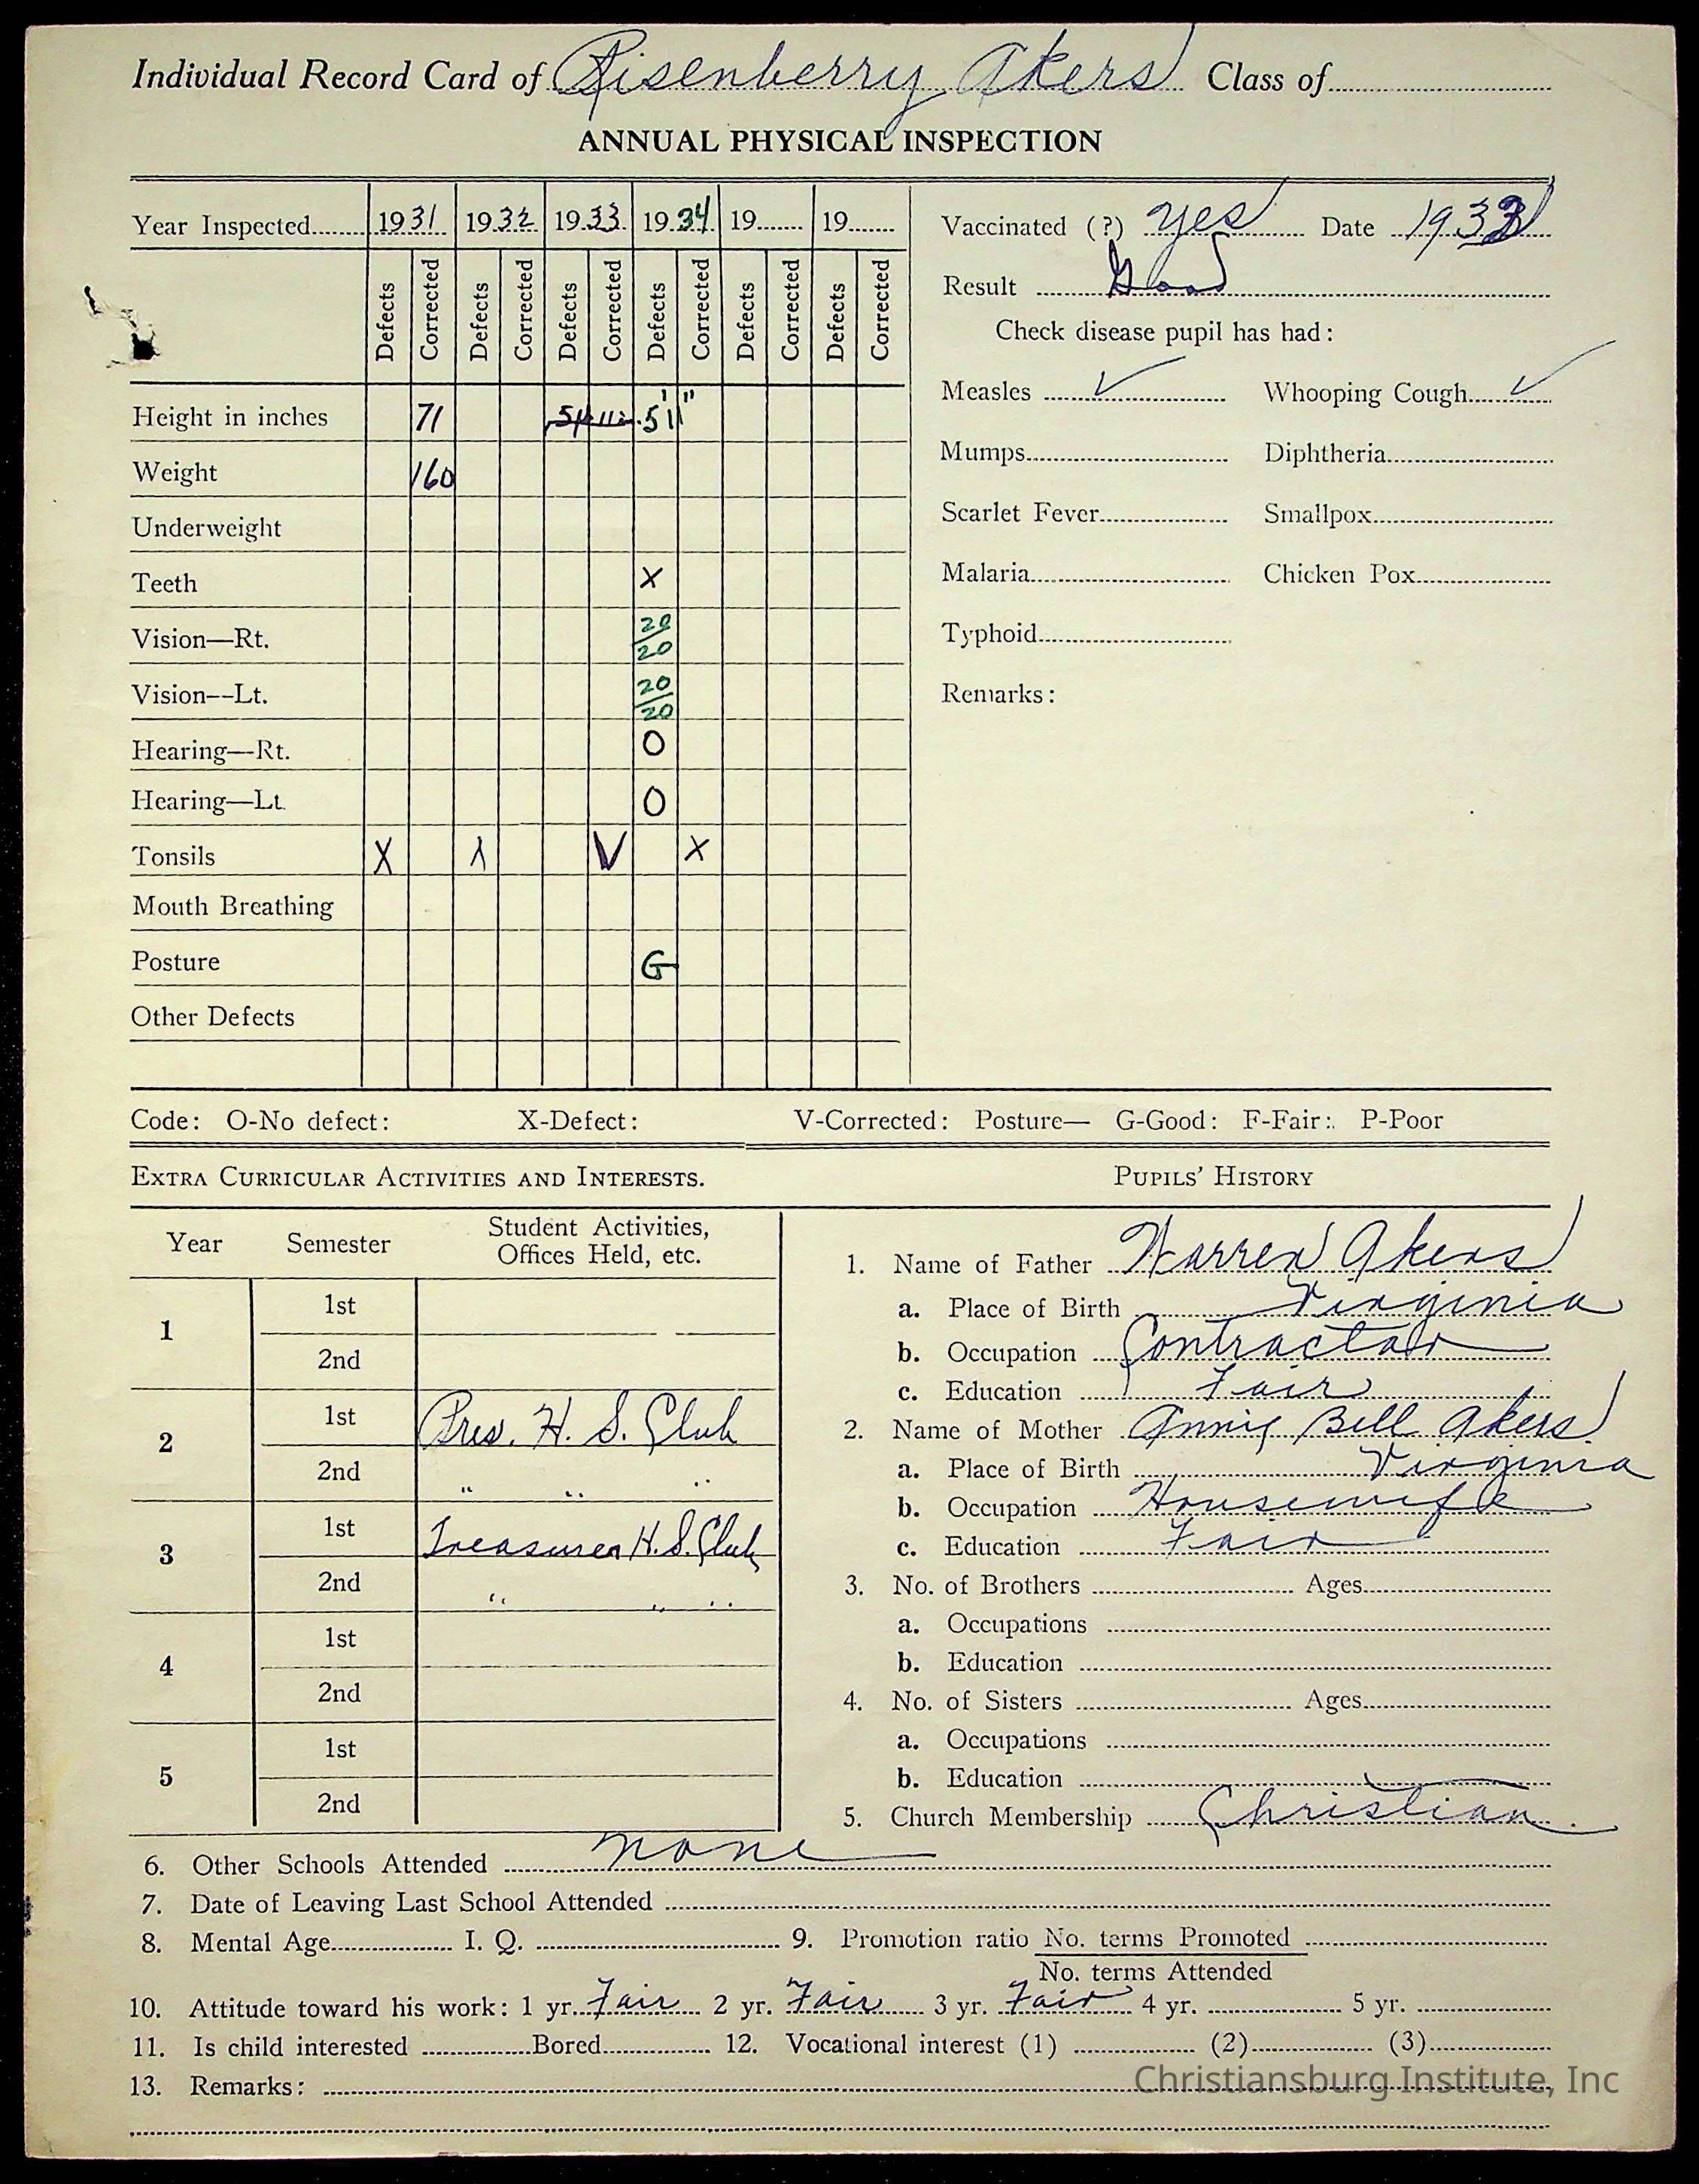 Individual Record Card of Risenberry Akers Class of
ANNUAL PHYSICAL INSPECTION
Year Inspected 1931 1932 1933 1934 19 19
Defects Corrected Defects Corrected Defects Corrected Defects Corrected Defects Corrected Defects Corrected
Height in inches 71 5'11"
Weight 160
Underweight
Teeth X
Vision—Rt. 20/20
Vision--Lt. 20/20
Hearing—Rt. O
Hearing—Lt. O
Tonsils X X V X
Mouth Breathing
Posture G
Other Defects
Vaccinated (?) yes Date 1933
Result Good
Check disease pupil has had:
Measles ✓ Whooping Cough ✓
Mumps Diphtheria
Scarlet Fever Smallpox
Malaria Chicken Pox
Typhoid
Remarks:
Code: O-No defect: X-Defect: V-Corrected: Posture— G-Good: F-Fair: P-Poor
EXTRA CURRICULAR ACTIVITIES AND INTERESTS.
Year Semester Student Activities,
Offices Held, etc.
1 1st
2nd
2 1st Pres. H. S. Club
2nd " " "
3 1st Treasurer H. S. Club
2nd " " "
4 1st
2nd
5 1st
2nd
PUPILS' HISTORY
1. Name of Father Warren Akers
a. Place of Birth Virginia
b. Occupation Contractor
c. Education Fair
2. Name of Mother Annie Bell Akers
a. Place of Birth Virginia
b. Occupation Housewife
c. Education Fair
3. No. of Brothers Ages
a. Occupations
b. Education
4. No. of Sisters Ages
a. Occupations
b. Education
5. Church Membership Christian
6. Other Schools Attended none
7. Date of Leaving Last School Attended
8. Mental Age I. Q. 9. Promotion ratio No. terms Promoted
No. terms Attended
10. Attitude toward his work: 1 yr. Fair 2 yr. Fair 3 yr. Fair 4 yr. 5 yr.
11. Is child interested Bored 12. Vocational interest (1) (2) (3)
13. Remarks:
Christiansburg Institute, Inc